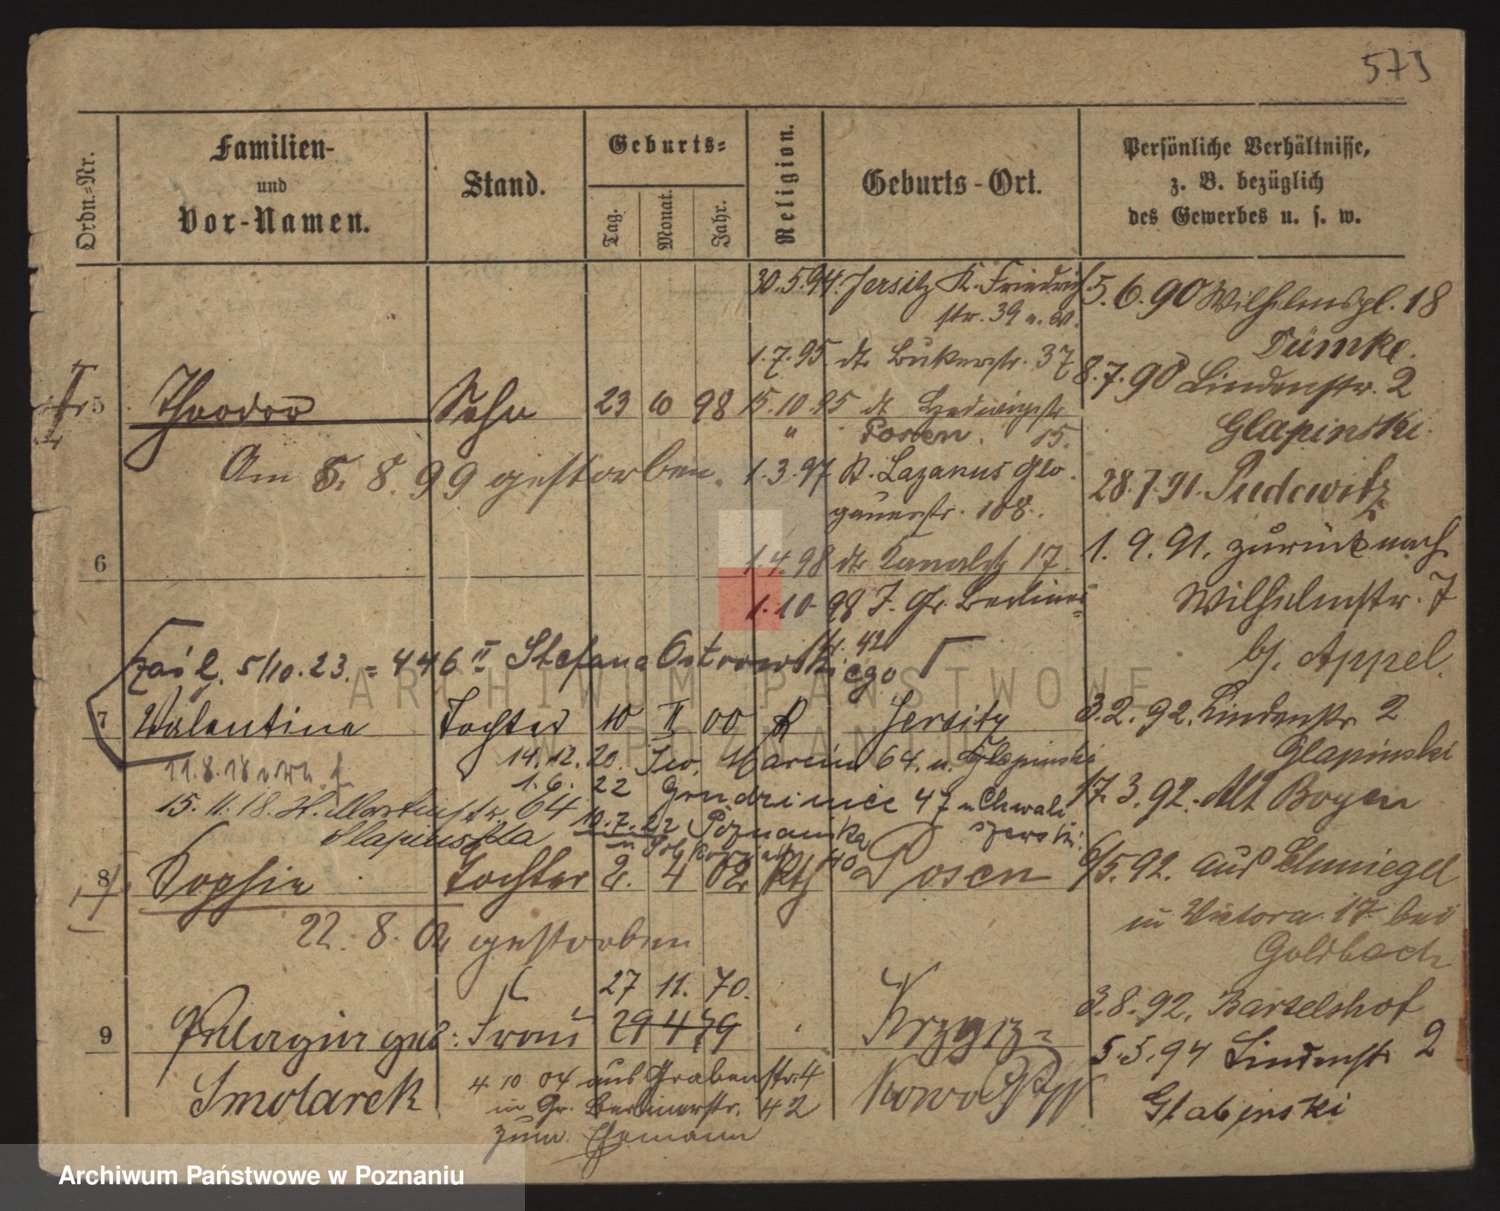 573
Ordn.-Nr.
Familien-
und
Vor-Namen.
Stand.
Geburts-
Tag.
Monat.
Jahr.
Religion.
Geburts-Ort.
Persönliche Verhältnisse,
z. B. bezüglich
des Gewerbes u. s. w.
30.5.94. Jersitz K. Friedrich
str. 39
1.7.95 Bukerstr. 37
5 Theodor Sohn 23 10 98
15.10.95 Hedwigstr
" Posen. 15.
Am 5. 8. 99 gestorben.
1.3.97 St. Lazarus Glo
gauerstr. 108.
6
1.4.98 Kanalstr 17.
1.10 98 Gr. Berliner
str. 42
5/10.23. = 446 II Stefana Ostrowskiego
7 Valentine Tochter 10 II 00 K Jersitz
11.8.18
14.12.20. Św. Marcin 64. u. Glapinski
1.6. 22 47 u Chwali
szewski
15.11.18. St. Martinstr. 64
Glapinska
10.7.22 Poznańska
40
8 Sophie Tochter 2. 4 02 Kth Posen
22. 8. 02 gestorben
27 11. 70.
9 Pelagia geb. Frau 29 4 79 Krzyz-
Smolarek
4 10 04 aus Grabenstr. 4
in Gr. Berlinerstr. 42
zum Ehemann
5.6.90 Wilhelmspl. 18
Tümke.
8.7.90 Lindenstr. 2
Glapinski.
28.7.91. Pudewitz
1.9.91. zurück nach
Wilhelmstr. 7
bj. Appel.
3.2.92. Lindenstr 2
Glapinski
17.3.92. Alt Boyen
6/5.92. aus Schmiegel
in Victoria 17 bei
Goldbach
3.8.92. Bartelshof
5.5.94 Lindenstr 2
Glabinski
ARCHIWUM PAŃSTWOWE
W POZNANIU
Archiwum Państwowe w Poznaniu